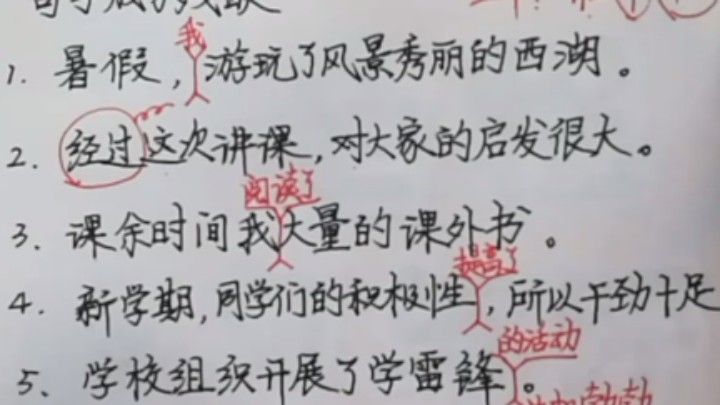 我
1. 暑假，游玩了风景秀丽的西湖。
2. 经过这次讲课，对大家的启发很大。
阅读了
3. 课余时间我大量的课外书。
提高了
4. 新学期，同学们的积极性，所以干劲十足
的活动
5. 学校组织开展了学雷锋。